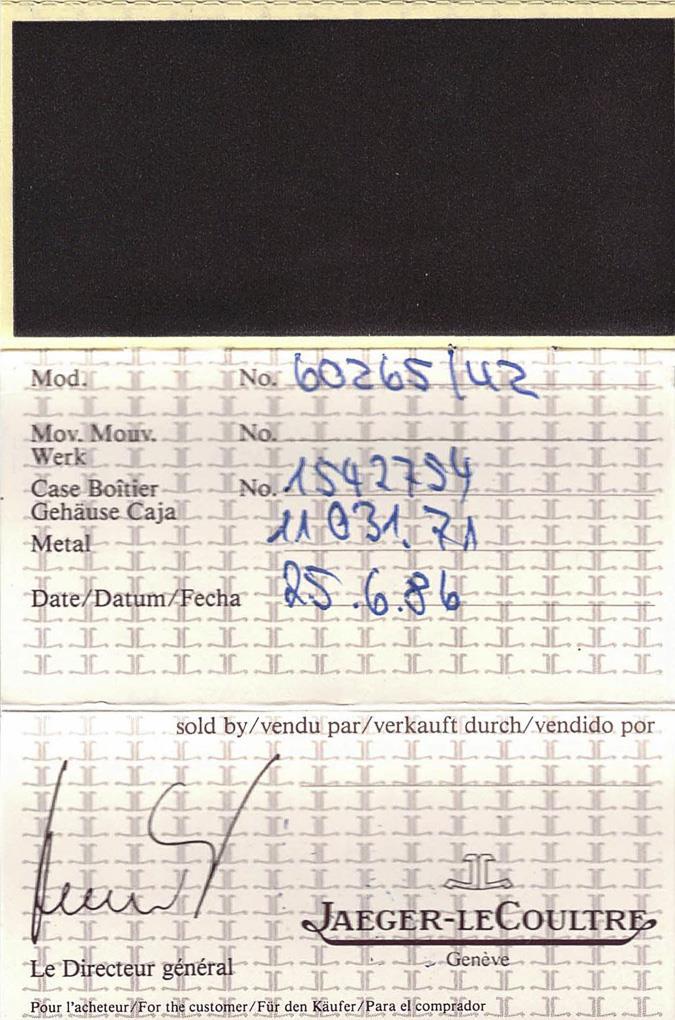 Mod. No. 60265/42
Mov. Mouv. No.
Werk
Case Boîtier No. 1542754
Gehäuse Caja
Metal 11031.71
Date/Datum/Fecha 25.6.86
sold by/vendu par/verkauft durch/vendido por
JAEGER-LECOULTRE
Genève
Le Directeur général
Pour l'acheteur/For the customer/Für den Käufer/Para el comprador